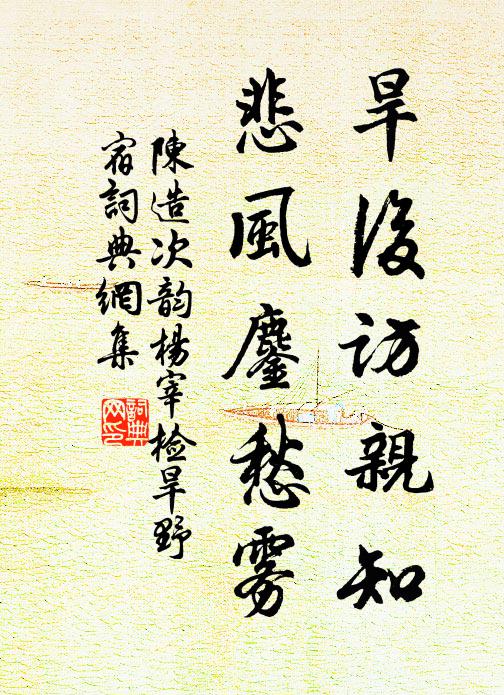 旱後访親知
悲風鏖愁雾
陳造次韵楊宰檢旱野
宿詞典網集
詞典
网印